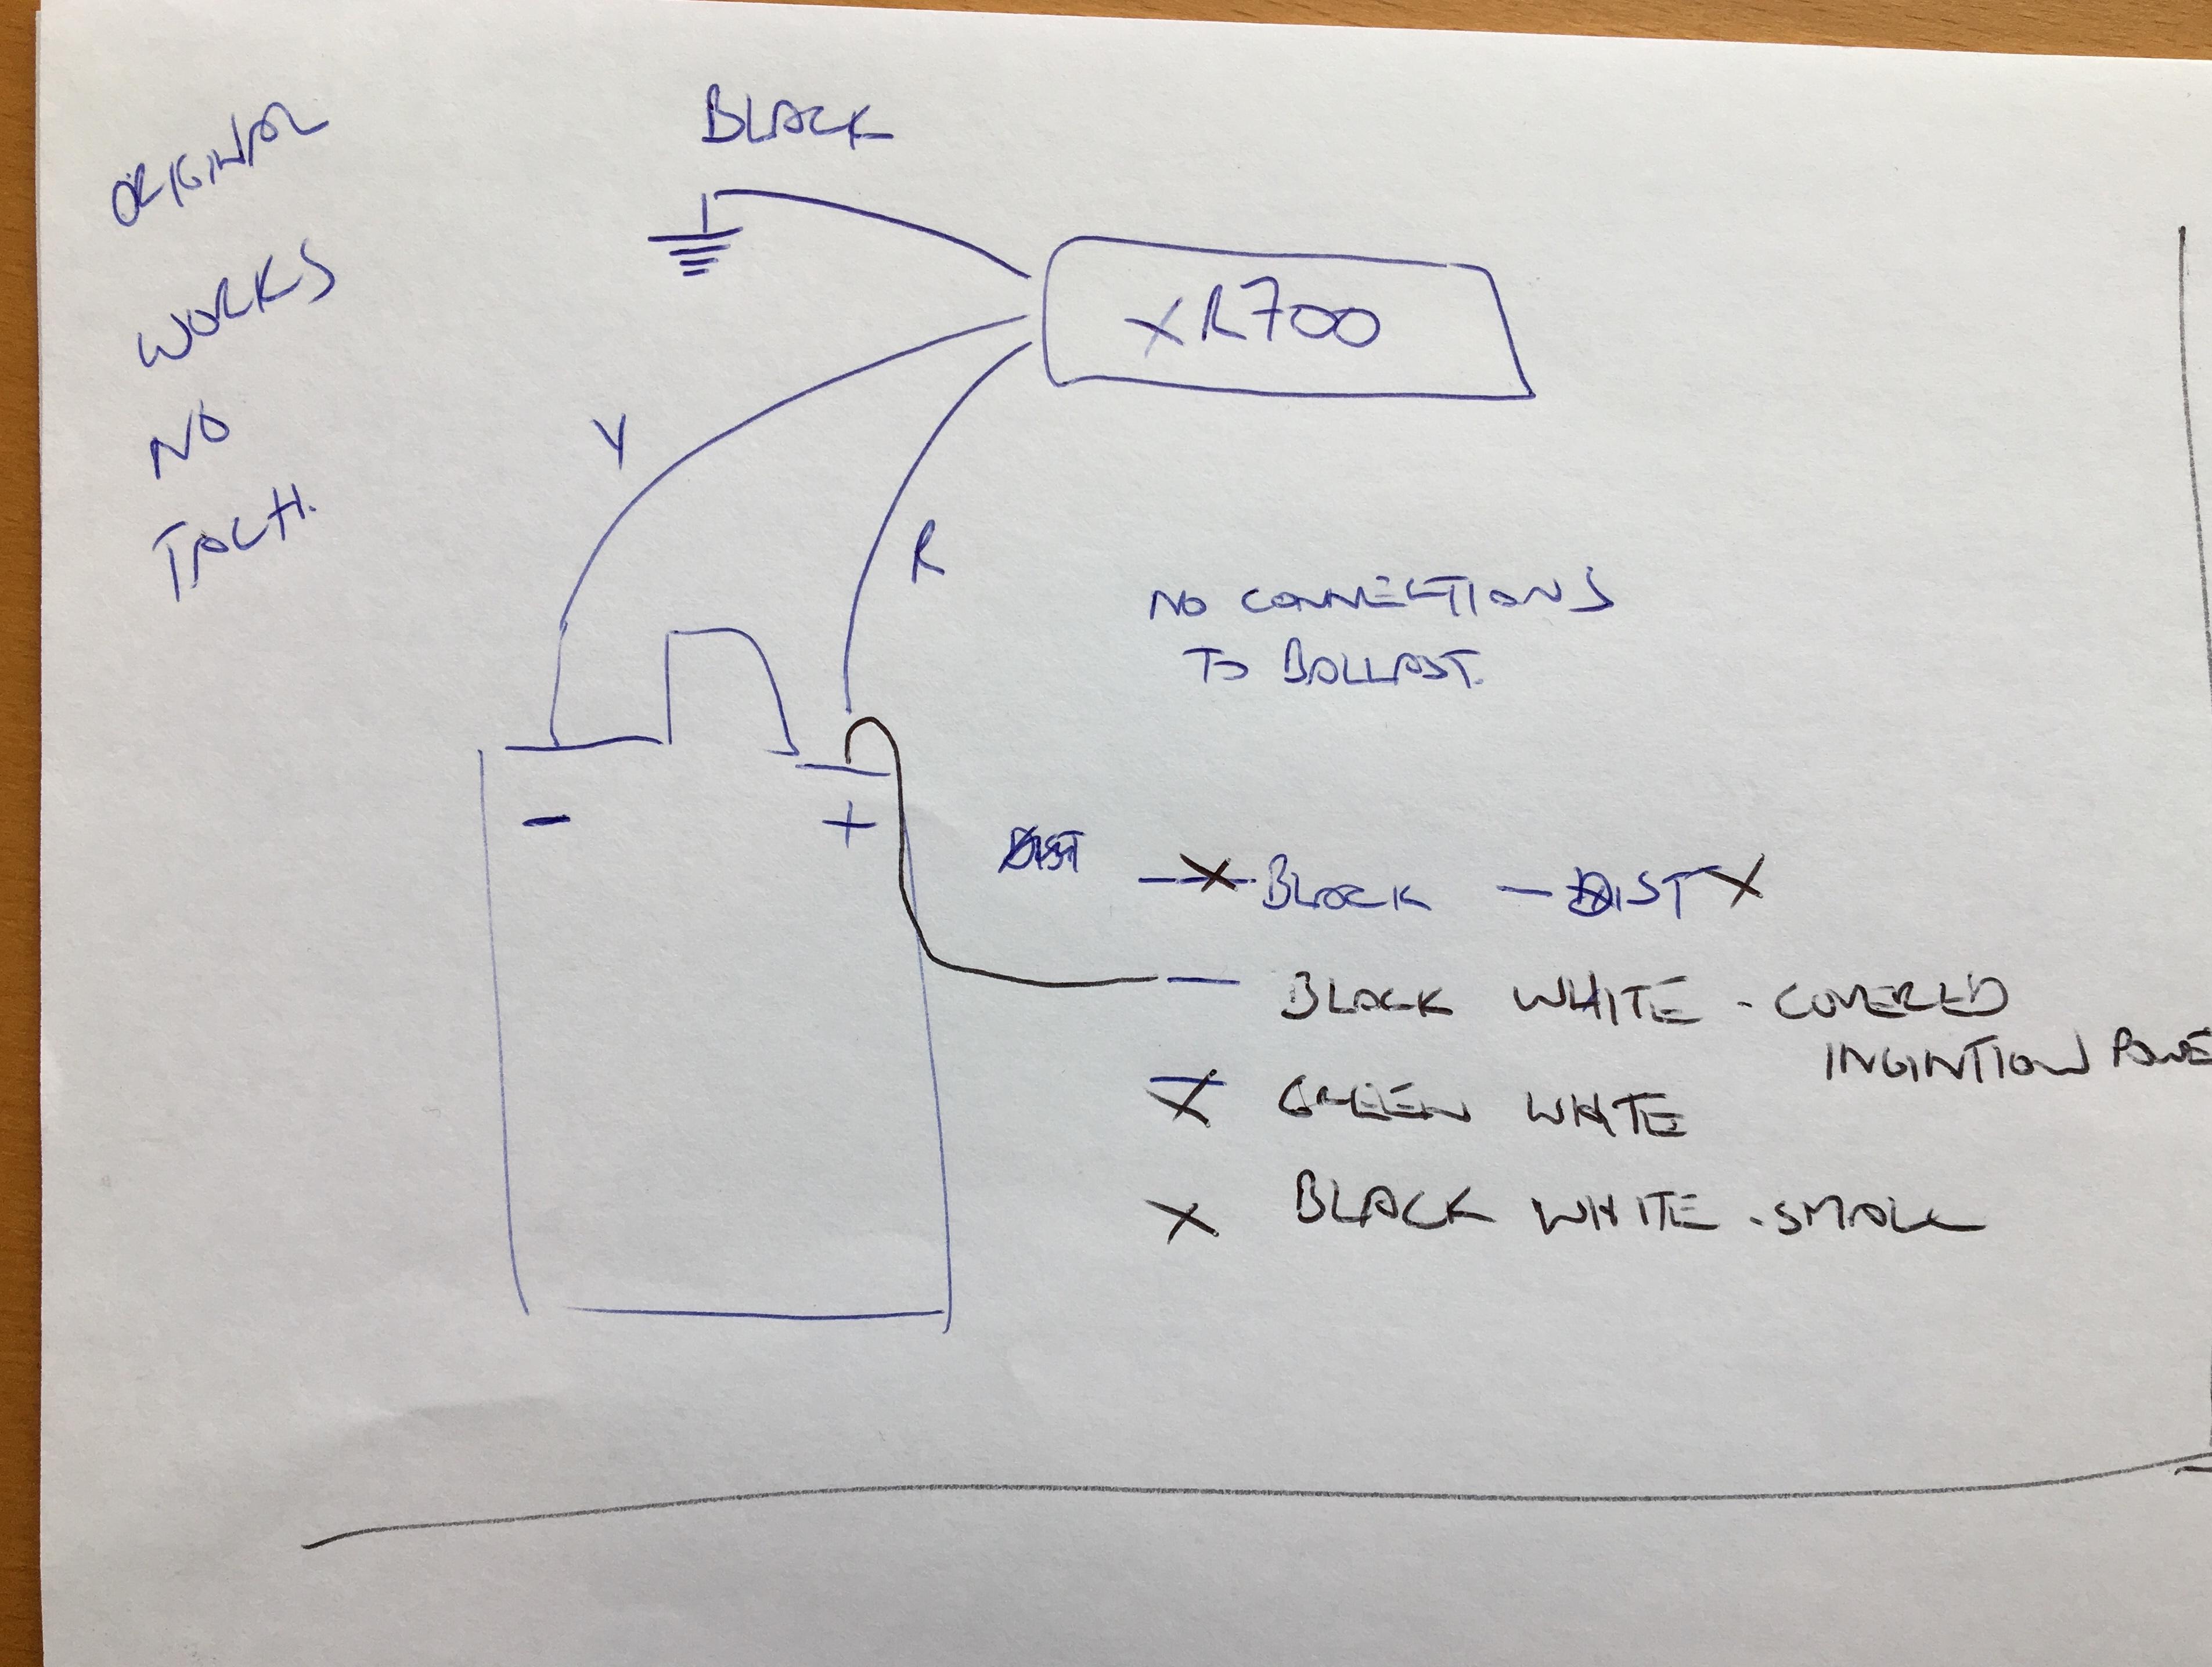 ORIGINAL
WORKS
NO
TACH.
BLACK
XR700
Y
R
NO CONNECTIONS
TO BALLAST.
- +
DIST
— X BLACK — DIST X
— BLACK WHITE - COVERED
INGINTION POWE
X GREEN WHITE
X BLACK WHITE - SMALL